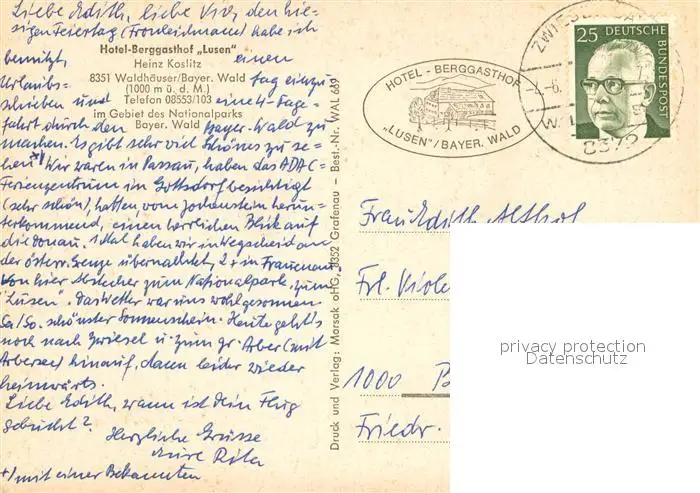 Liebe Edith, liebe Vio, den hie-
sigen Feiertag (Fronleichnam) habe ich
benützt, einen
Urlaubs- tag einzu-
schieben und eine 4-Tage-
fahrt durch den Bayer. Wald zu
machen. Es gibt sehr viel Schönes zu se-
hen! +) Wir waren in Passau, haben das ADAC-
Ferienzentrum in Gottsdorf besichtigt
(sehr schön), hatten vom Jochenstein herun-
terkommend, einen herrlichen Blick auf
die Donau. 1 Mal haben wir in Wegscheid an
der österr. Grenze übernachtet, 2 x in Frauenau,
von hier Abstecher zum Nationalpark, zum
"Lusen". Das Wetter war uns wohlgesonnen
Sa/So. schönster Sonnenschein. Heute geht's
noch nach Zwiesel u. zum gr. Arber (mit
Arbersee) hinauf, dann leider wieder
heimwärts.
Liebe Edith, wann ist Dein Flug
gebucht?
Herzliche Grüsse
Eure Rita
+) mit einer Bekannten
Hotel-Berggasthof „Lusen"
Heinz Koslitz
8351 Waldhäuser/Bayer. Wald
(1000 m ü. d. M.)
Telefon 08553/103
im Gebiet des Nationalparks
Bayer. Wald
Druck und Verlag: Morsak oHG, 8352 Grafenau – Best.-Nr. WAL 669
HOTEL - BERGGASTHOF
„LUSEN"/BAYER. WALD
8372
25 DEUTSCHE
BUNDESPOST
Frau Edith Althof
Frl. Viole
1000 B
Friedr.
privacy protection
Datenschutz